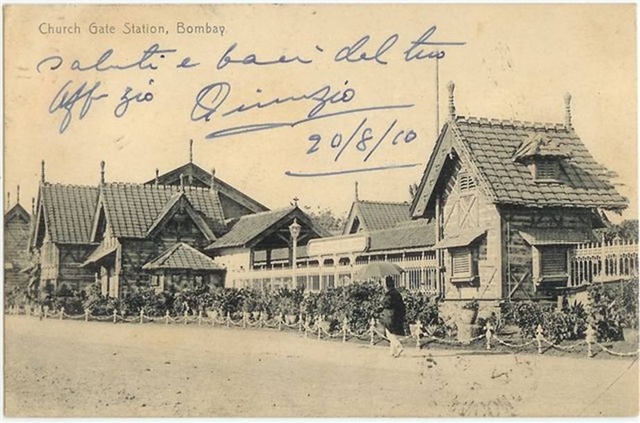 Church Gate Station, Bombay.
saluti e baci del tuo
Aff. zio Quinzio
20/8/10